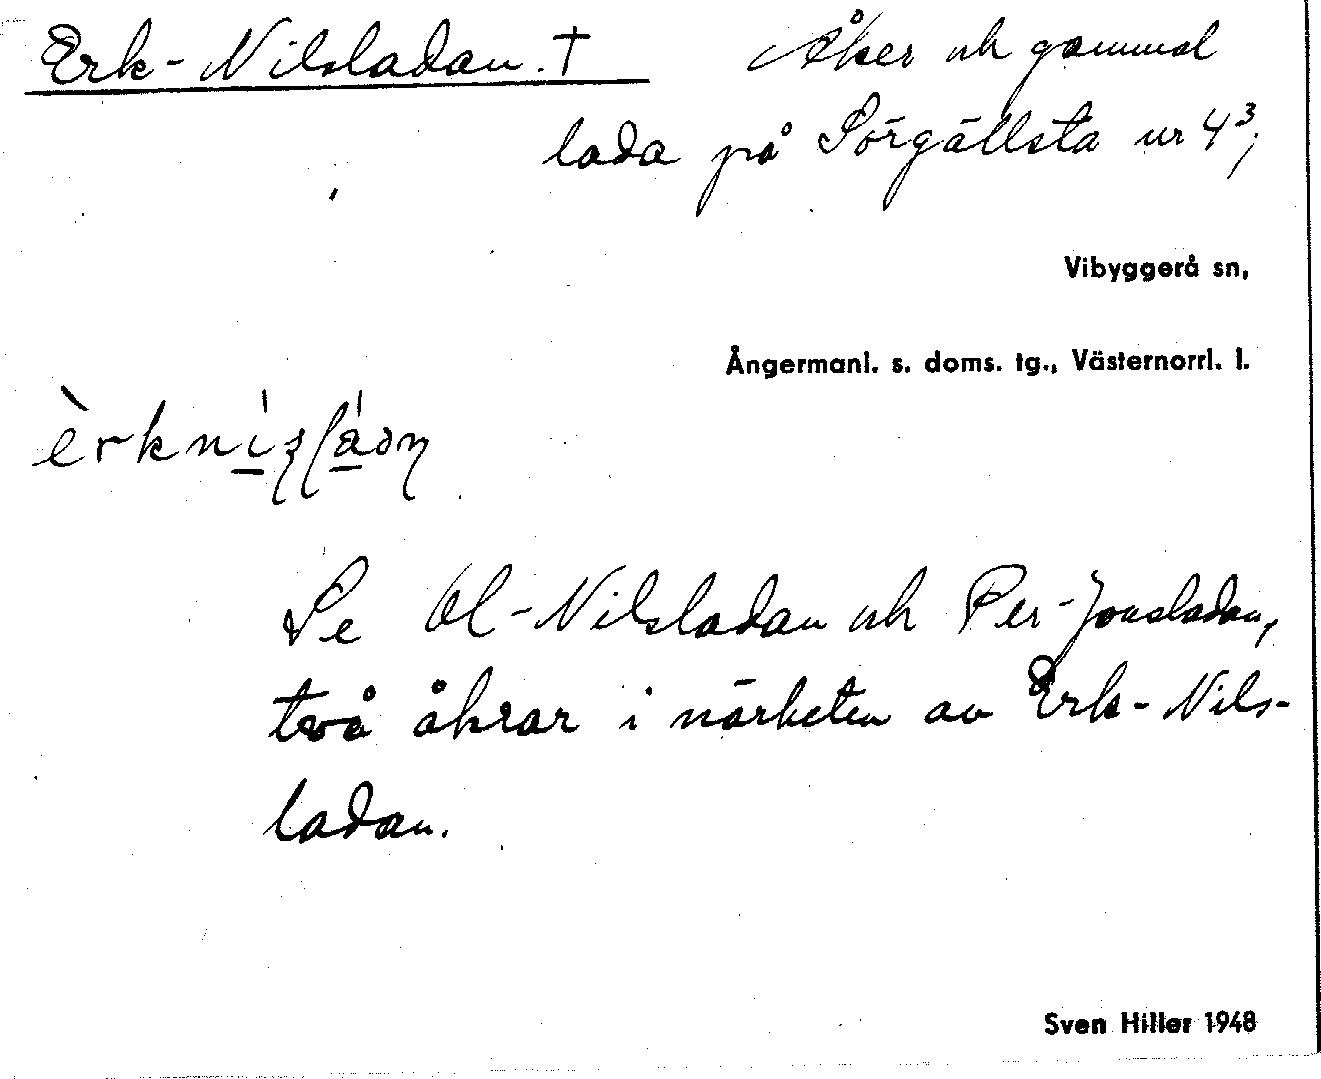 Erk-Nilsladan. † Åker och gammal
lada på Sörgällsta nr 4³,
Vibyggerå sn,
Ångermanl. s. doms. tg., Västernorrl. l.
Se Ol-Nilsladan och Per-Jonsladan,
två åkrar i närheten av Erk-Nils-
ladan.
Sven Hiller 1948